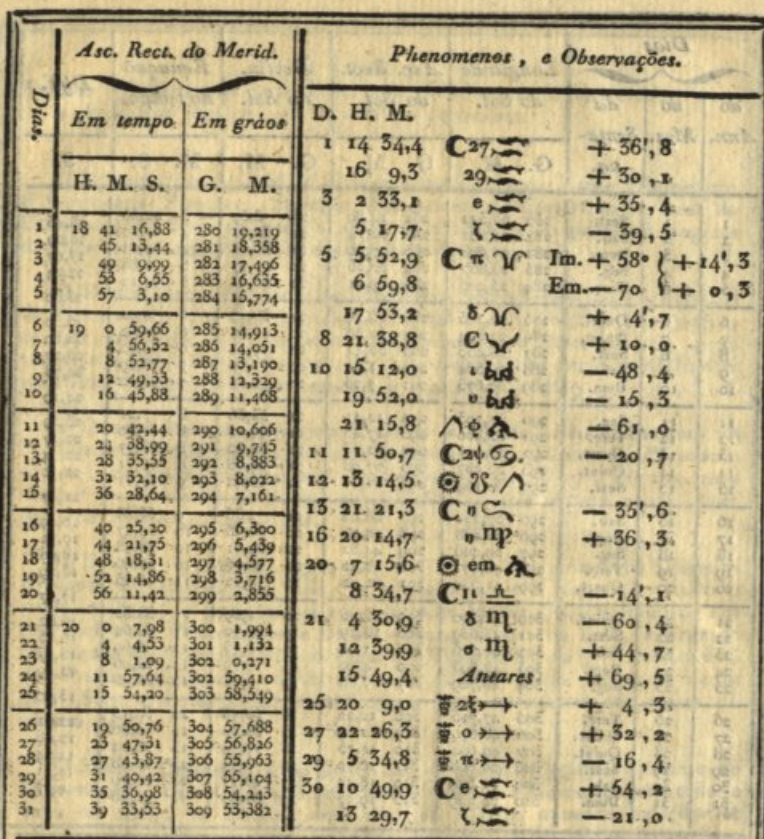 Asc. Rect. do Merid.
Phenomenos, e Observações.
Dias.
Em tempo
Em gráos
H. M. S.
G. M.
1 18 41 16,88 280 19,219
2 45 13,44 281 18,358
3 49 9,99 282 17,496
4 53 6,55 283 16,635
5 57 3,10 284 15,774
6 19 0 59,66 285 14,913
7 4 56,32 286 14,051
8 8 52,77 287 13,190
9 12 49,33 288 12,329
10 16 45,88 289 11,468
11 20 42,44 290 10,606
12 24 38,99 291 9,745
13 28 35,55 292 8,883
14 32 32,10 293 8,022
15 36 28,64 294 7,161
16 40 25,20 295 6,300
17 44 21,75 296 5,439
18 48 18,31 297 4,577
19 52 14,86 298 3,716
20 56 11,42 299 2,855
21 20 0 7,98 300 1,994
22 4 4,53 301 1,132
23 8 1,09 302 0,271
24 11 57,64 302 59,410
25 15 54,20 303 58,549
26 19 50,76 304 57,688
27 23 47,31 305 56,826
28 27 43,87 306 55,963
29 31 40,42 307 55,104
30 35 36,98 308 54,243
31 39 33,53 309 53,382
D. H. M.
1 14 34,4 ☾ 27 ♒ + 36',8
16 9,3 29 ♒ + 30,1
3 2 33,1 e ♒ + 35,4
5 17,7 ζ ♒ — 39,5
5 5 52,9 ☾ π ♈ Im. + 58° } + 14',3
6 59,8 Em. — 70 } + 0,3
17 53,2 δ ♈ + 4',7
8 21 38,8 ☾ ♉ + 10,0
10 15 12,0 ι — 48,4
19 52,0 υ — 15,3
21 15,8 — 61,0
11 11 50,7 ☾ 2ψ ♋ — 20,7
12 13 14,5
13 21 21,3 ☾ — 35',6
16 20 14,7 ♍ + 36,3
20 7 15,6 ☉ em ♒
8 34,7 ☾ ♎ — 14',1
21 4 30,9 δ ♏ — 60,4
12 39,9 σ ♏ + 44,7
15 49,4 Antares + 69,5
25 20 9,0 2ξ ♐ + 4,3
27 22 26,3 o ♐ + 32,2
29 5 34,8 π ♐ — 16,4
30 10 49,9 ☾ e ♒ + 54,2
13 29,7 ζ ♒ — 21,0